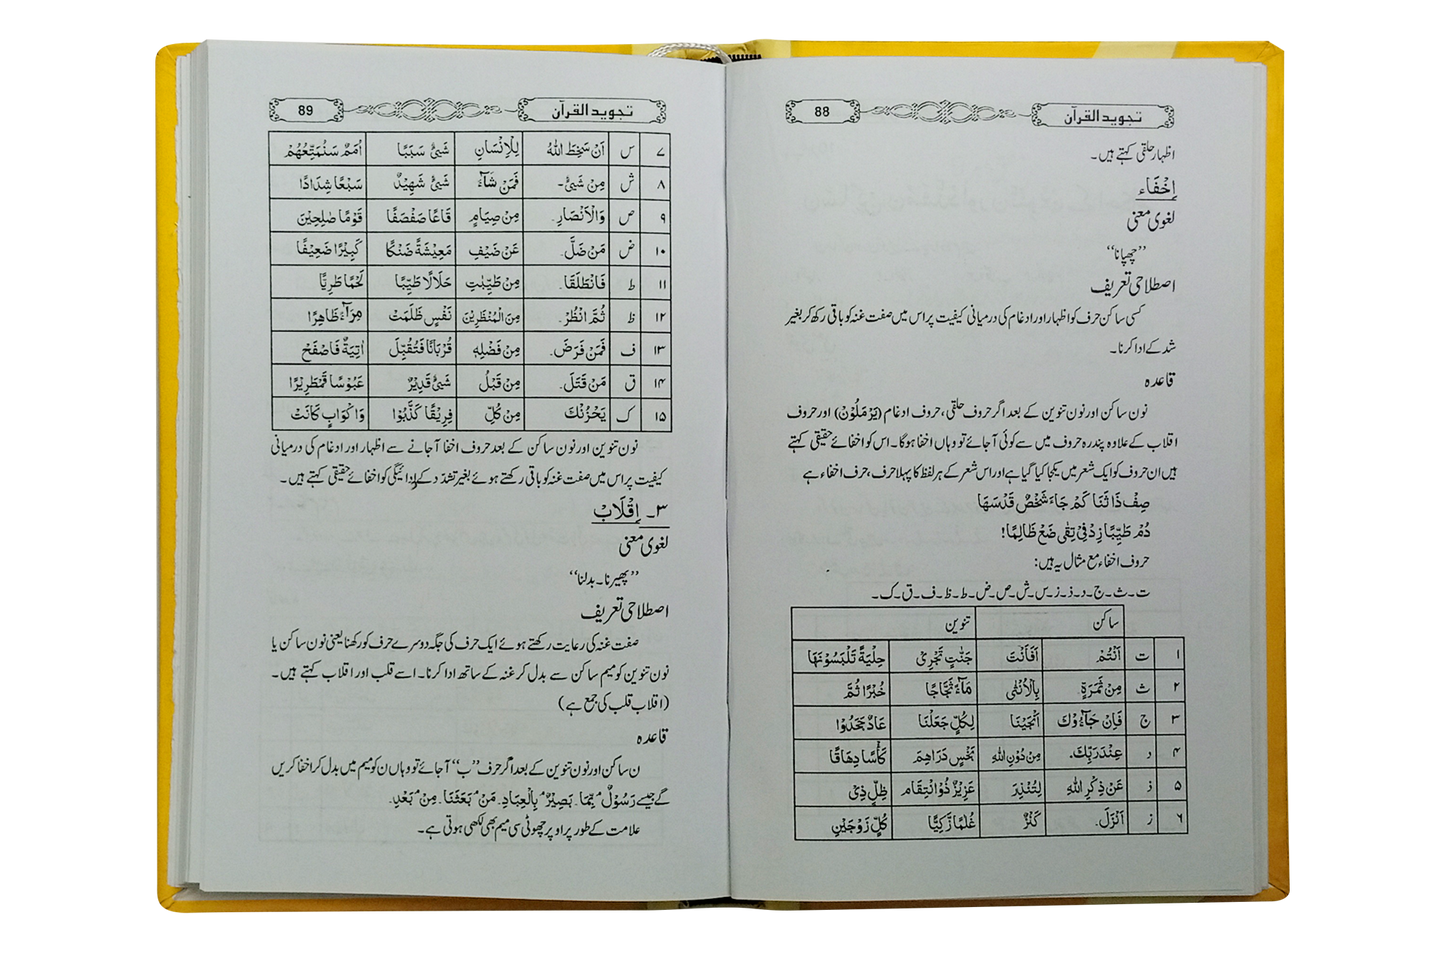 تجوید القرآن 88
اظہار حلقی کہتے ہیں۔
اِخْفَاء
لغوی معنی
’’چھپانا‘‘
اصطلاحی تعریف
کسی ساکن حرف کو اظہار اور ادغام کی درمیانی کیفیت پر اس میں صفت غنہ کو باقی رکھ کر بغیر
شد کے ادا کرنا۔
قاعدہ
نون ساکن اور نون تنوین کے بعد اگر حروف حلقی، حروف ادغام (یَرْمَلُوْنَ) اور حروف
اقلاب کے علاوہ پندرہ حروف میں سے کوئی آجائے تو وہاں اخفا ہوگا۔ اس کو اخفائے حقیقی کہتے
ہیں ان حروف کو ایک شعر میں یکجا کیا گیا ہے اور اس شعر کے ہر لفظ کا پہلا حرف، حرف اخفاء ہے
صِفْ ذَا ثَنَا كَمْ جَاءَ شَخْصٌ قَدْ سَمَا
دُمْ طَيِّبًا زِدْ فِيْ تِقٰى ضَعْ ظَالِمًا!
حروف اخفاء مع مثال یہ ہیں:
ت۔ث۔ج۔د۔ذ۔ز۔س۔ش۔ص۔ض۔ط۔ظ۔ف۔ق۔ک۔
ساکن تنوین
۱ ت اَنْتُمْ اَفَاَنْتَ جَنّٰتٍ تَجْرِيْ حِلْيَةً تَلْبَسُوْنَهَا
۲ ث مِنْ ثَمَرَةٍ بِالْاُنْثٰى مَآءً ثَجَّاجًا خُبْرًا ثُمَّ
۳ ج فَاِنْ جَآءُوْكَ اَنْجَيْنَا لِكُلٍّ جَعَلْنَا عَادٌ جَحَدُوْا
۴ د عِنْدَ رَبِّكَ۔ مِنْ دُوْنِ اللّٰهِ بَخْسٍ دَرَاهِمَ كَأْسًا دِهَاقًا
۵ ذ عَنْ ذِكْرِ اللّٰهِ لِتُنْذِرَ عَزِيْزٌ ذُوْانْتِقَام ظِلٍّ ذِيْ
۶ ز اَنْزَلَ۔ كَنْزٌ غُلٰمًا زَكِيًّا كُلٍّ زَوْجَيْنِ
تجوید القرآن 89
۷ س اَنْ سَخِطَ اللّٰهُ لِلْاِنْسَانِ شَيْءٍ سَبَبًا اُمَمٌ سَنُمَتِّعُهُمْ
۸ ش مِنْ شَيْءٍ۔ فَمَنْ شَآءَ شَيْءٍ شَهِيْدٌ سَبْعًا شِدَادًا
۹ ص وَالْاَنْصَارِ۔ مِنْ صِيَامٍ قَاعًا صَفْصَفًا قَوْمًا صٰلِحِيْنَ
۱۰ ض مَنْ ضَلَّ۔ عَنْ ضَيْفِ مَعِيْشَةً ضَنْكًا كَبِيْرًا ضَعِيْفًا
۱۱ ط فَانْطَلَقَا۔ مِنْ طَيِّبٰتِ حَلَالًا طَيِّبًا لَحْمًا طَرِيًّا
۱۲ ظ ثُمَّ انْظُرْ۔ مِنَ الْمُنْظَرِيْنَ نَفْسٍ ظَلَمَتْ مِرَآءً ظَاهِرًا
۱۳ ف فَمَنْ فَرَضَ۔ مِنْ فَضْلِهٖ قُرْبَانًا فَتُقُبِّلَ اٰتِيَةٌ فَاصْفَحْ
۱۴ ق مَنْ قَتَلَ۔ مِنْ قَبْلُ شَيْءٍ قَدِيْرٌ عَبُوْسًا قَمْطَرِيْرًا
۱۵ ک يَحْزُنْكَ مِنْ كُلِّ فَرِيْقًا كَذَّبُوْا وَاَكْوَابٍ كَانَتْ
نون تنوین اور نون ساکن کے بعد حروف اخفا آجانے سے اظہار اور ادغام کی درمیانی
کیفیت پر اس میں صفت غنہ کو باقی رکھتے ہوئے بغیر تشدّد کے ادائیگی کو اخفائے حقیقی کہتے ہیں۔
۳۔ اِقْلَابْ
لغوی معنی
’’پھیرنا۔ بدلنا‘‘
اصطلاحی تعریف
صفت غنہ کی رعایت رکھتے ہوئے ایک حرف کی جگہ دوسرے حرف کو رکھنا یعنی نون ساکن یا
نون تنوین کو میم ساکن سے بدل کر غنہ کے ساتھ ادا کرنا۔ اسے قلب اور اقلاب کہتے ہیں۔
(اقلاب قلب کی جمع ہے)
قاعدہ
ن ساکن اور نون تنوین کے بعد اگر حرف ’’ب‘‘ آجائے تو وہاں ن کو میم میں بدل کر اخفا کریں
گے جیسے رَسُوْلٌۢ بِمَا۔ بَصِيْرٌۢ بِالْعِبَادِ۔ مَنْۢ بَعَثَنَا۔ مِنْۢ بَعْدِ۔
علامت کے طور پر اوپر چھوٹی سی میم بھی لکھی ہوتی ہے۔